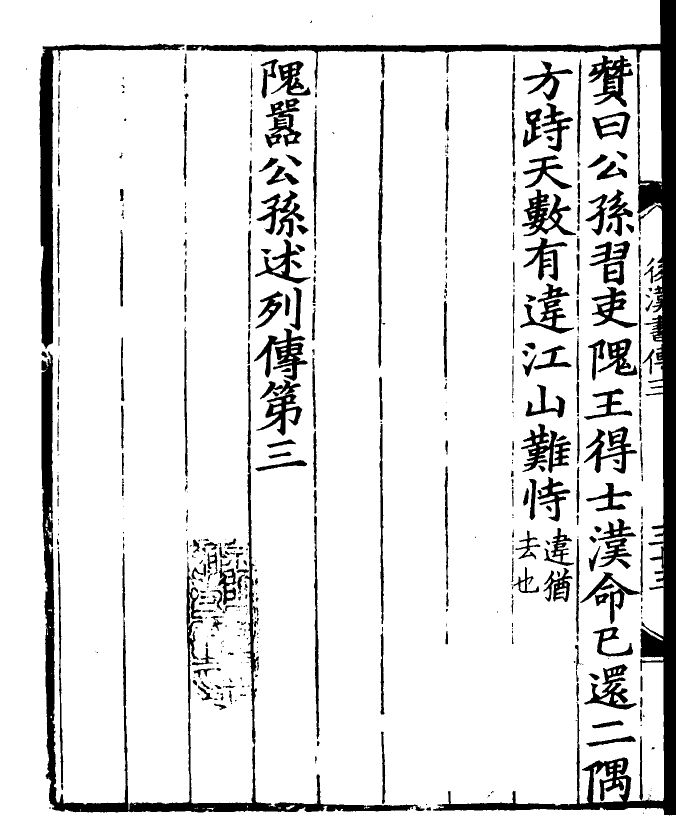 贊曰公孫習吏隗王得士漢命已還二隅
方跱天數有違江山難恃違猶去也
隗囂公孫述列傳第三
後漢書傳三
三十三